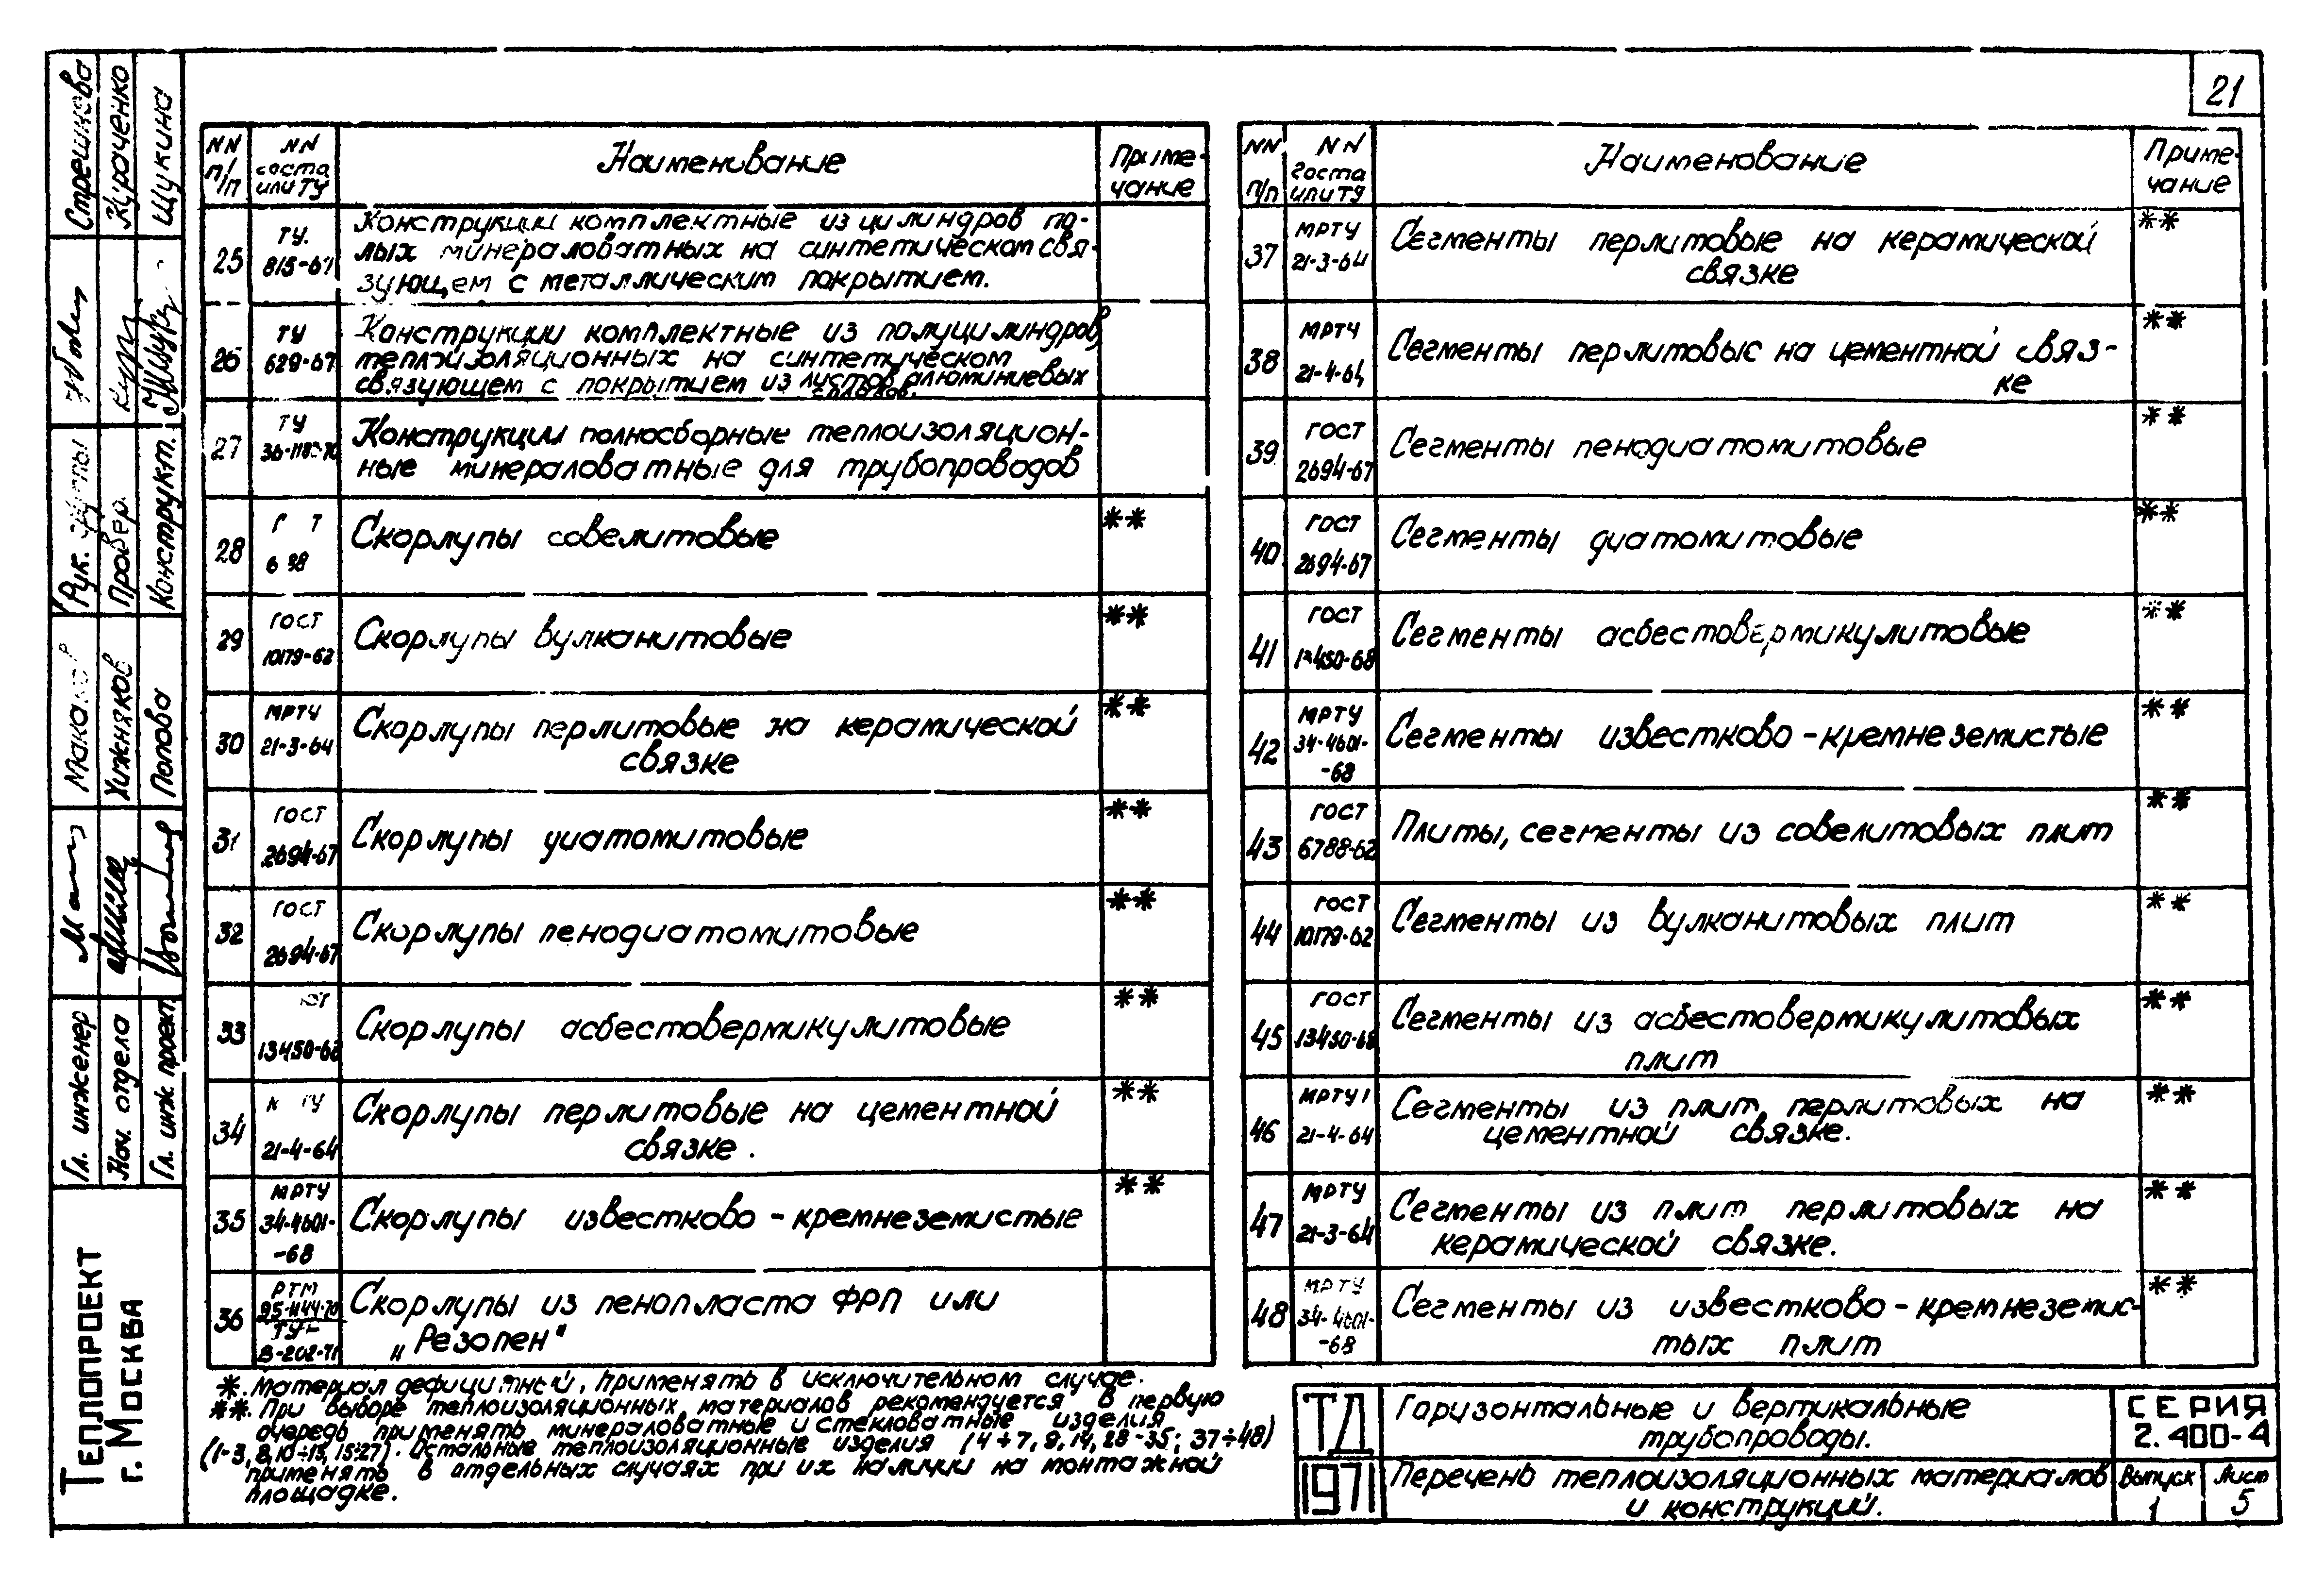 21
NN п/п
NN госта или ТУ
Наименование
Примечание
25
ТУ 815-67
Конструкции комплектные из цилиндров по-
лых минераловатных на синтетическом свя-
зующем с металлическим покрытием.
26
ТУ 629-67
Конструкции комплектные из полуцилиндров
теплоизоляционных на синтетическом
связующем с покрытием из листов алюминиевых
сплавов.
27
ТУ
Конструкции полносборные теплоизоляцион-
ные минераловатные для трубопроводов
28
Г Т
Скорлупы совелитовые
**
29
ГОСТ 10179-62
Скорлупы вулканитовые
**
30
МРТУ 21-3-64
Скорлупы перлитовые на керамической
связке
**
31
ГОСТ 2694-67
Скорлупы диатомитовые
**
32
ГОСТ 2694-67
Скорлупы пенодиатомитовые
**
33
13450-68
Скорлупы асбестовермикулитовые
**
34
21-4-64
Скорлупы перлитовые на цементной
связке.
**
35
МРТУ 34-4601-
-68
Скорлупы известково-кремнеземистые
**
36
РТМ 95-1144-70
ТУ-
В-202-71
Скорлупы из пенопласта ФРП или
"Резопен"
NN п/п
NN госта или ТУ
Наименование
Примечание
37
МРТУ 21-3-64
Сегменты перлитовые на керамической
связке
**
38
МРТУ 21-4-64
Сегменты перлитовые на цементной связ-
ке
**
39
ГОСТ 2694-67
Сегменты пенодиатомитовые
**
40
ГОСТ 2694-67
Сегменты диатомитовые
**
41
ГОСТ 13450-68
Сегменты асбестовермикулитовые
**
42
МРТУ 34-4601-
-68
Сегменты известково-кремнеземистые
**
43
ГОСТ 6788-62
Плиты, сегменты из совелитовых плит
**
44
ГОСТ 10179-62
Сегменты из вулканитовых плит
**
45
ГОСТ 13450-68
Сегменты из асбестовермикулитовых
плит
**
46
МРТУ 21-4-64
Сегменты из плит перлитовых на
цементной связке.
**
47
МРТУ 21-3-64
Сегменты из плит перлитовых на
керамической связке.
**
48
МРТУ 34-4601-
-68
Сегменты из известково-кремнеземис-
тых плит
**
*. Материал дефицитный, применять в исключительном случае.
**. При выборе теплоизоляционных материалов рекомендуется в первую
очередь применять минераловатные и стекловатные изделия
(1-3, 8, 10÷13, 15÷27). Остальные теплоизоляционные изделия (4÷7, 9, 14, 28-35; 37÷48)
применять в отдельных случаях при их наличии на монтажной
площадке.
ТД
1971
Горизонтальные и вертикальные
трубопроводы.
СЕРИЯ
2.400-4
Перечень теплоизоляционных материалов
и конструкций.
Выпуск
1
Лист
5
Гл. инженер Макаров
Нач. отдела Хижняков
Гл. инж. проект. Попова
Рук. группы Стрешнова
Провер. Кураченко
Конструкт. Щукина
ТЕПЛОПРОЕКТ
г. МОСКВА